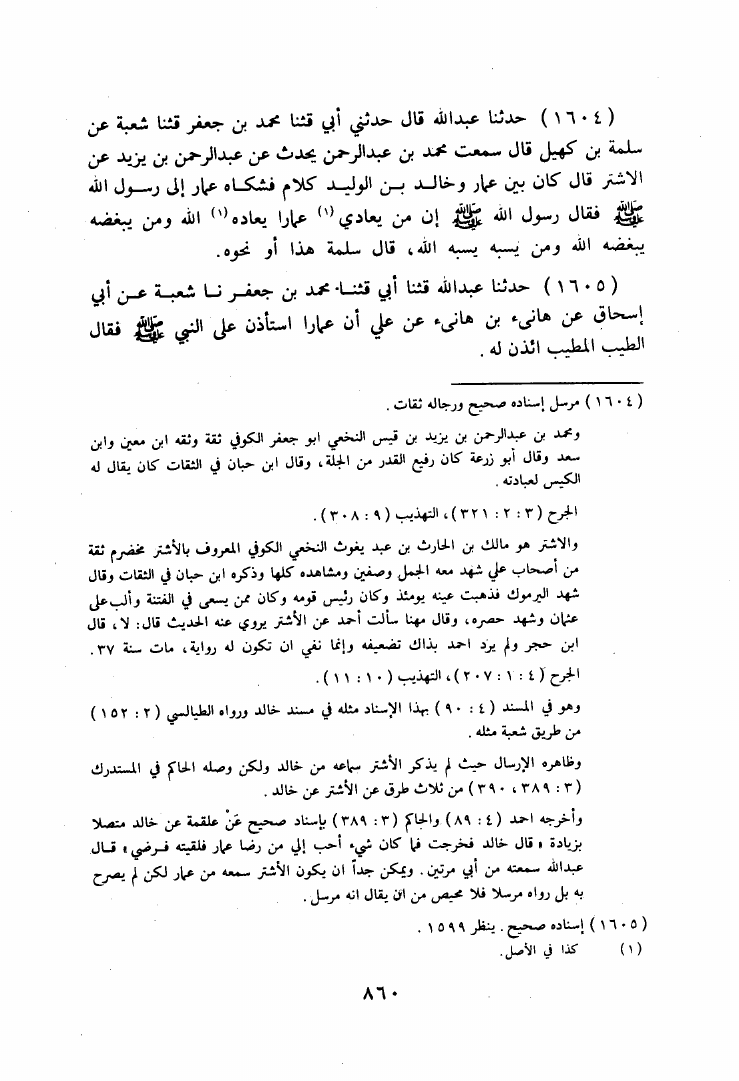 (١٦٠٤) حدثنا عبدالله قال حدثني أبي قثنا محمد بن جعفر قثنا شعبة عن
سلمة بن كهيل قال سمعت محمد بن عبدالرحمن يحدث عن عبدالرحمن بن يزيد عن
الاشتر قال كان بين عمار وخالد بن الوليد كلام فشكاه عمار إلى رسول الله
ﷺ فقال رسول الله ﷺ إن من يعادي(١) عمارا يعاده(١) الله ومن يبغضه
يبغضه الله ومن يسبه يسبه الله، قال سلمة هذا أو نحوه.
(١٦٠٥) حدثنا عبدالله قثنا أبي قثنا محمد بن جعفر نا شعبة عن أبي
إسحاق عن هانىء بن هانىء عن علي أن عمارا استأذن على النبي ﷺ فقال
الطيب المطيب ائذن له.
(١٦٠٤) مرسل إسناده صحيح ورجاله ثقات.
ومحمد بن عبدالرحمن بن يزيد بن قيس النخعي ابو جعفر الكوفي ثقة وثقه ابن معين وابن
سعد وقال أبو زرعة كان رفيع القدر من الجلة، وقال ابن حبان في الثقات كان يقال له
الكيس لعبادته.
الجرح (٣ : ٢ : ٣٢١)، التهذيب (٩ : ٣٠٨).
والاشتر هو مالك بن الحارث بن عبد يغوث النخعي الكوفي المعروف بالأشتر مخضرم ثقة
من أصحاب علي شهد معه الجمل وصفين ومشاهده كلها وذكره ابن حبان في الثقات وقال
شهد اليرموك فذهبت عينه يومئذ وكان رئيس قومه وكان ممن يسعى في الفتنة وألب على
عثمان وشهد حصره، وقال مهنا سألت أحمد عن الأشتر يروي عنه الحديث قال: لا، قال
ابن حجر ولم يرد احمد بذاك تضعيفه وإنما نفي ان تكون له رواية، مات سنة ٣٧.
الجرح (٤ : ١ : ٢٠٧)، التهذيب (١٠ : ١١).
وهو في المسند (٤ : ٩٠) بهذا الإسناد مثله في مسند خالد ورواه الطيالسي (٢ : ١٥٢)
من طريق شعبة مثله.
وظاهره الإرسال حيث لم يذكر الأشتر سماعه من خالد ولكن وصله الحاكم في المستدرك
(٣ : ٣٨٩، ٣٩٠) من ثلاث طرق عن الأشتر عن خالد.
وأخرجه احمد (٤ : ٨٩) والحاكم (٣ : ٣٨٩) بإسناد صحيح عَنْ علقمة عن خالد متصلا
بزيادة «قال خالد فخرجت فما كان شيء أحب إلي من رضا عمار فلقيته فرضي» قال
عبدالله سمعته من أبي مرتين. ويمكن جداً ان يكون الأشتر سمعه من عمار لكن لم يصرح
به بل رواه مرسلا فلا محيص من ان يقال انه مرسل.
(١٦٠٥) إسناده صحيح. ينظر ١٥٩٩.
(١) كذا في الأصل.
٨٦٠